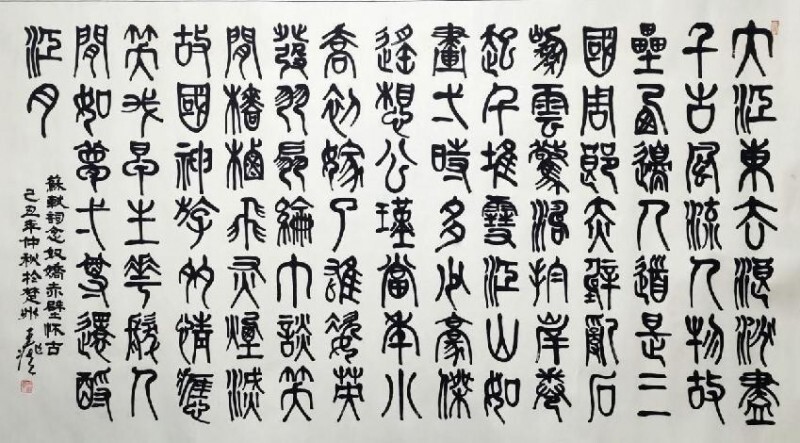 大江東去浪淘盡
千古風流人物故
壘西邊人道是三
國周郎赤壁亂石
崩雲驚濤拍岸卷
起千堆雪江山如
畫弌時多少豪傑
遙想公瑾當年小
喬初嫁了雄姿英
發羽扇綸巾談笑
間檣櫓飛灰煙滅
故國神游多情應
笑我早生華髮人
間如夢弌尊還酹
江月
蘇軾詞念奴嬌赤壁懷古
己丑年仲秋於楚州